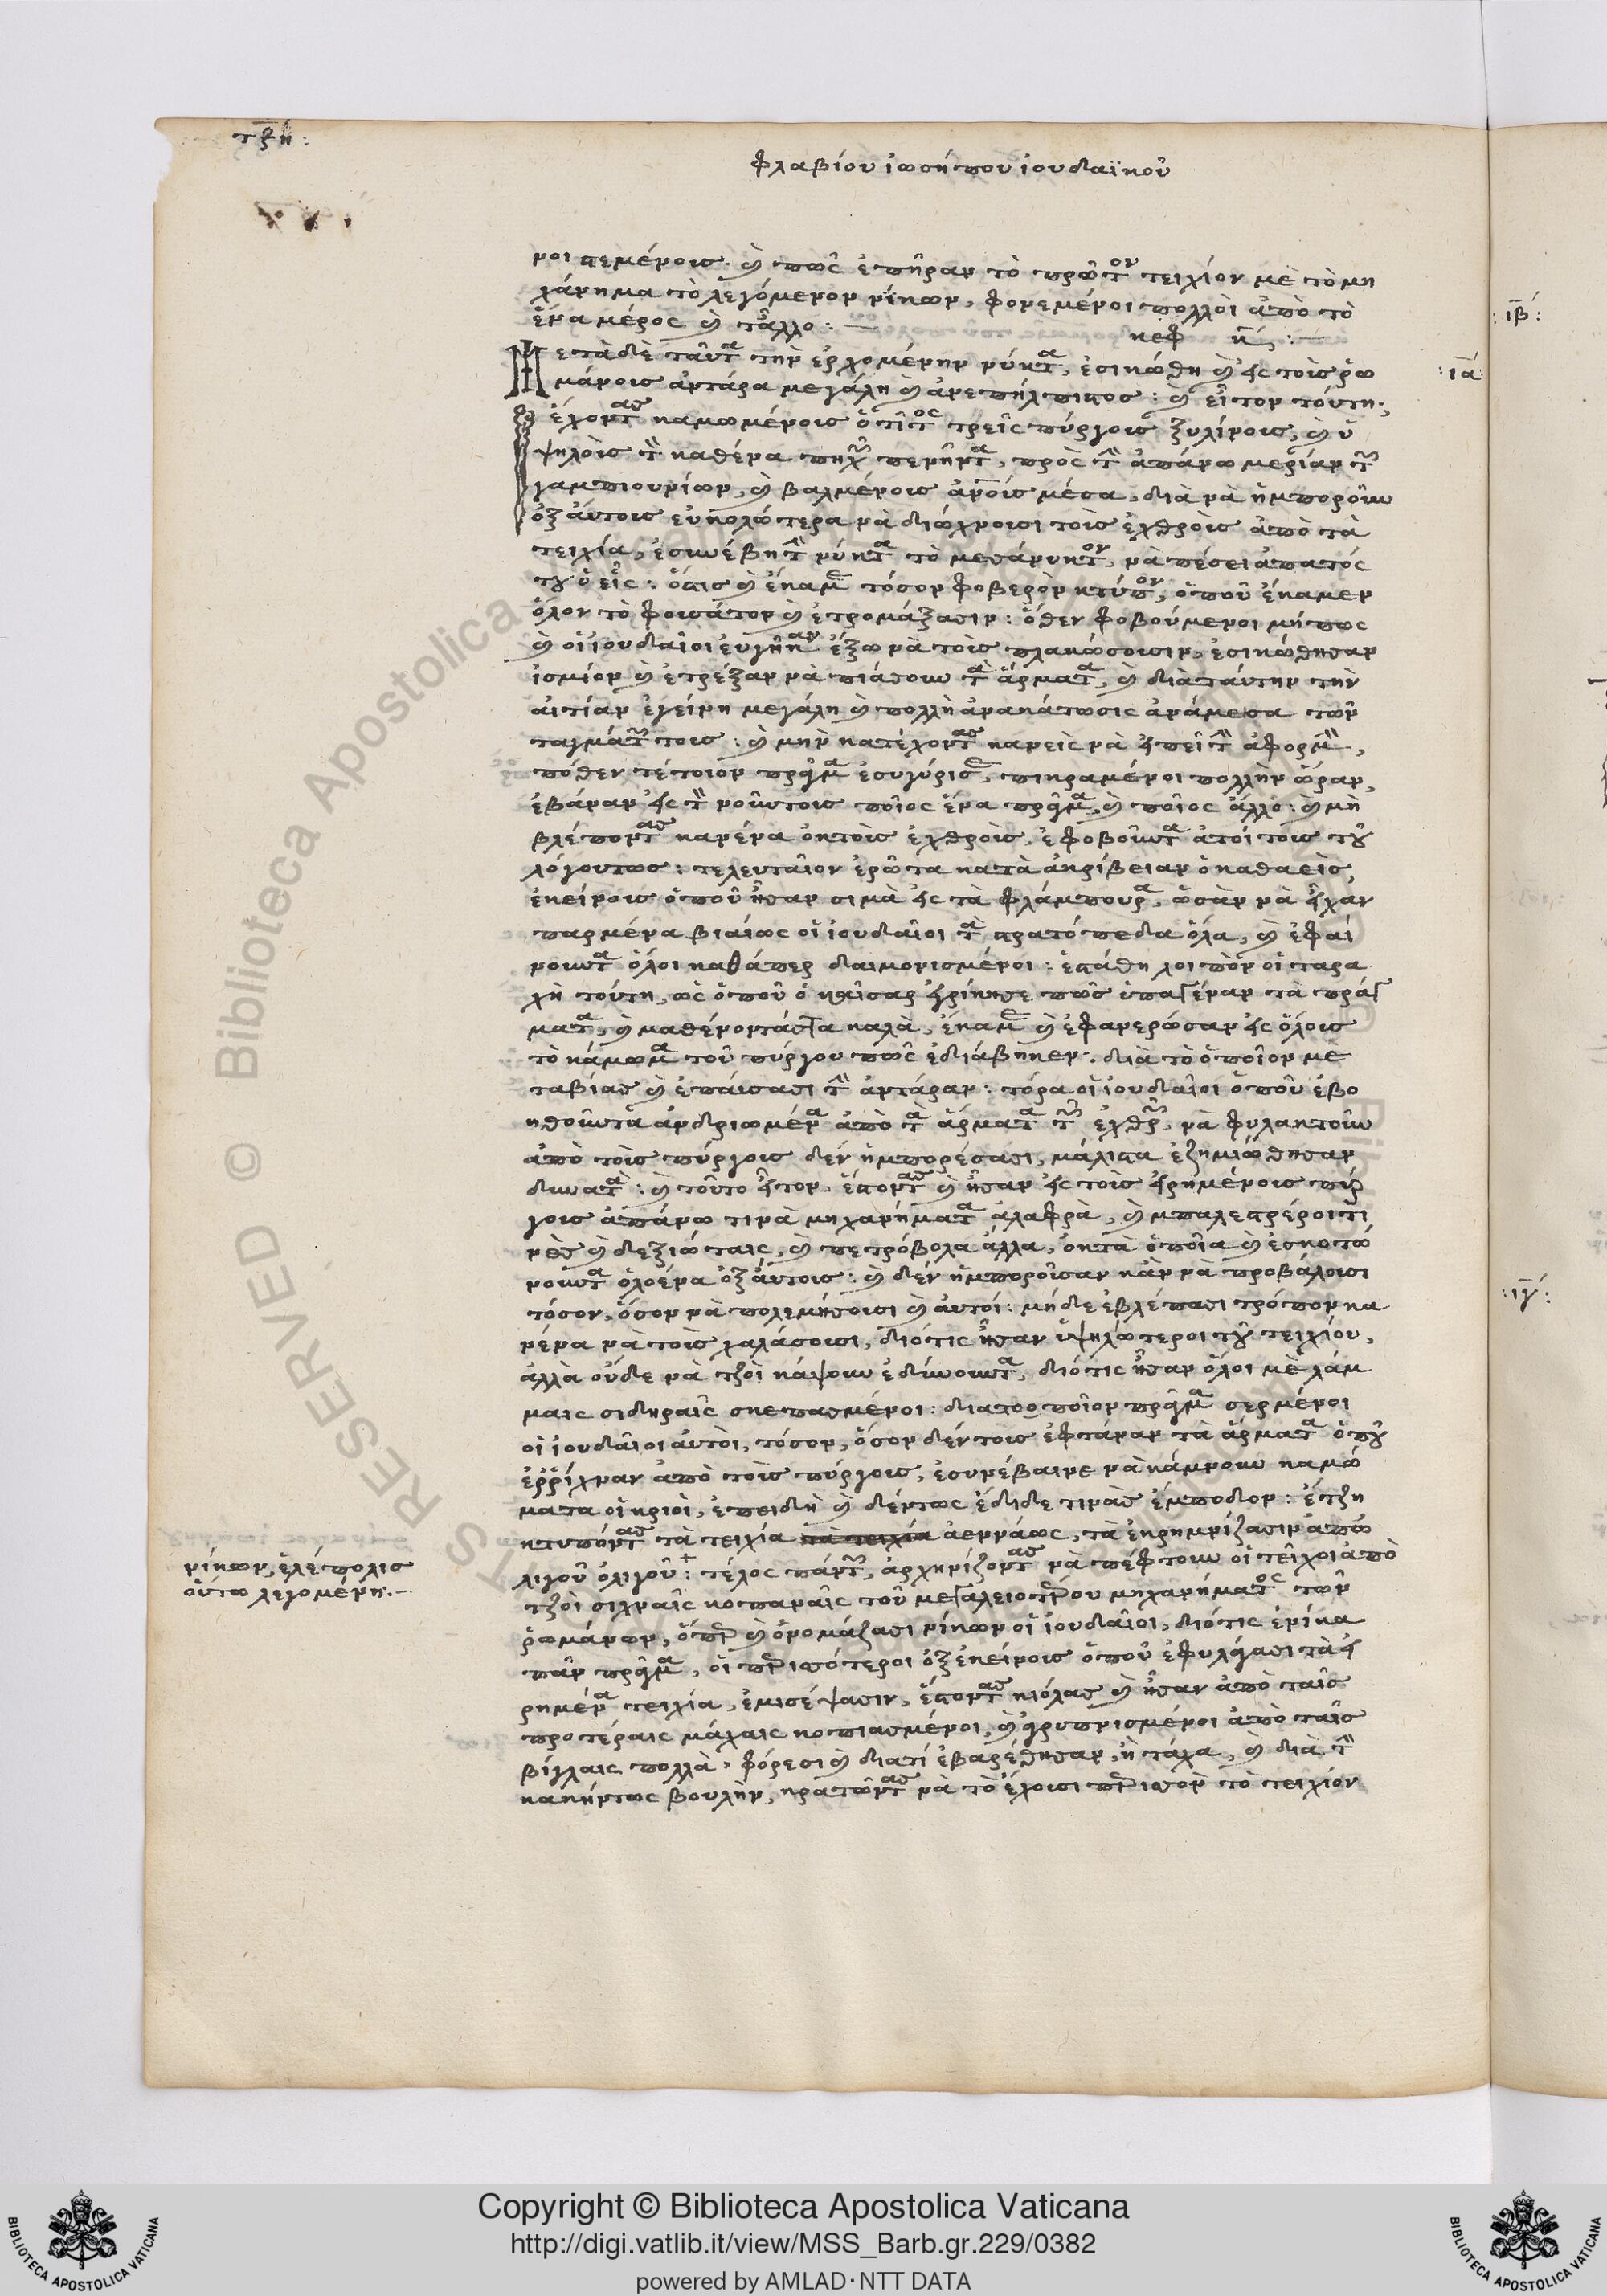 τξη:
φλαβίου ἰωσήπου ἰουδαϊκοῦ
νοι πεμένοις. καὶ πῶς ἐπῆραν τὸ πρῶτον τειχίον μὲ τὸ μη
χάνημα τὸ λεγόμενον νίκων, φονεμένοι πολλοὶ ἀπὸ τὸ
ἕνα μέρος καὶ τἄλλο:
κεφ η:
Μετὰ δὲ ταῦτα τὴν ἐρχομένην νύκτα, ἐσικώθη καὶ εἰς τοὺς ῥω
μάνοις ἀντάρα μεγάλη καὶ ἀνεπήλπιστος: καὶ εἶτον τούτη.
ἔχοντας καμωμένοις ὁ τίτος τρεῖς πύργοις ξυλίνοις, καὶ ὑ
ψηλοὶς τὴν καθένα πηχῶν πενῆντα, πρὸς τὴν ἀπάνω μερίαν τῶν
χαμπιουνίων, καὶ βαλμένοις μέσα, διὰ νὰ ἠμποροῦν
ὀξ αὐτοις εὐκολώτερα νὰ διώχνοισι τοὶς ἐχθροὶς ἀπὸ τὰ
τειχία, ἐσυνέβη τὴν νύκτα τὸ μεσάνυκτον, νὰ πέσει ἀπατός
του ὁ εἷς: ὅστις καὶ ἔκαμε τόσον φοβερὸν κτύπον, ὁποῦ ἔκαμεν
ὅλον τὸ φουσάτον καὶ ἐτρομάξασιν: ὅθεν φοβούμενοι μήπως
καὶ οἱ ἰουδαῖοι εὐγῆκαν ἔξω νὰ τοὶς πλακώσοισιν, ἐσικώθησαν
ἰσμίον καὶ ἐτρέξαν νὰ πιάσουν τὰ ἅρματα, καὶ διὰ ταύτην τὴν
αἰτίαν ἐγείνη μεγάλη καὶ πολλὴ ἀνακάτωσις ἀνάμεσα τῶν
ταγμάτων τοις: καὶ μὴν κατέχοντας κανεὶς νὰ εἰπεῖ τὴν ἀφορμὴν,
πόθεν τέτοιον πρᾶγμα ἐσυγύρισε, πικραμένοι πολλὴν ὥραν,
ἐβάναν εἰς τὸν νοῦν τοις ποῖος ἕνα πρᾶγμα, καὶ ποῖος ἄλλο: καὶ μὴ
βλέποντας κανένα ὀκ τοὶς ἐχθροὶς, ἐφοβοῦντα ἀτοί τοις τοῦ
λόγου τως: τελευταῖον ἐρώτα κατὰ ἀκρίβειαν ὁ καθαεὶς,
ἐκείνοις ὁποῦ ἦσαν σιμὰ εἰς τὰ φλάμπουρα, ὡσὰν νὰ εἶχαν
παρμένα βιαίως οἱ ἰουδαῖοι τὰ στρατόπεδα ὅλα, καὶ ἐφαί
νουντα ὅλοι καθάπερ δαιμονισμένοι: ἐστάθη λοιπὸν οἱ ταρα
χὴ τούτη, ὡς ὁποῦ ὁ καῖσαρ ἐγρίκησε πῶς ὑπαγέναν τὰ πράγ
ματα, καὶ μαθένοντάς τα καλὰ, ἔκαμε καὶ ἐφανερώσαν εἰς ὅλοις
τὸ κάμωμα τοῦ πύργου πῶς ἐδιάβηκεν. διὰ τὸ ὁποῖον μὲ
ταβίας καὶ ἐπαύσασι τὴν ἀντάραν: τόρα οἱ ἰουδαῖοι ὁποῦ ἐβο
ηθοῦντα ἀνδριωμένα ἀπὸ τὰ ἅρματα τῶν ἐχθρῶν, νὰ φυλακτοῦν
ἀπὸ τοὶς πύργοις δὲν ἠμπορέσασι, μάλιστα ἐζημιώθησαν
δυνατὰ: καὶ τοῦτο εἶτον, ἔστοντας καὶ ἦσαν εἰς τοὶς εἰρημένοις πύρ
γοις ἀπάνω τινὰ μηχανήματα ἀλαφρὰ, καὶ μπαλεστρένοι τι
νὲς καὶ δεξιώταις, καὶ πετρόβολα ἄλλα, ὀκ τὰ ὁποῖα καὶ ἐσκοτώ
νουντα ὁλοένα ὀξ αὐτοις: καὶ δὲν ἠμποροῦσαν κἂν νὰ προβάλοισι
τόσον, ὅσον νὰ πολεμήσοισι καὶ αὐτοί: μήδε ἐβλέπασι τρόπον κα
νένα νὰ τοὶς χαλάσοισι, διότις ἦσαν ὑψηλώτεροι τοῦ τειχίου,
ἀλλὰ οὔδε νὰ τζοὶ κάψουν ἐδύνουντα, διότις ἦσαν ὅλοι μὲ λάμ
μαις σιδηραῖς σκεπασμένοι: διὰ τὸ ὁποῖον πρᾶγμα σερμένοι
οἱ ἰουδαῖοι αὐτοὶ, τόσον, ὅσον δὲν τοις ἐφτάναν τὰ ἅρματα ὁποῦ
ἐῤῥίχναν ἀπὸ τοὶς πύργοις, ἐσυνέβαινε νὰ κάμνουν καμώ
ματα οἱ κριοὶ, ἐπειδὴ καὶ δέν τως ἔδιδε τινὰς ἔμποδον: ἔτζη
κτυπόντας τὰ τειχία ἀεννάως, τὰ ἐκρημνίζασιν ἀπὸ
λιγοῦ ὀλιγοῦ: τέλος πάντων, ἀρχηνίζοντας νὰ πέφτουν οἱ τεῖχοι ἀπὸ
τζοὶ συχναῖς κοπαναῖς τοῦ μεγαλειοτέρου μηχανήματος τῶν
ῥωμάνων, ὅπερ καὶ ὀνομάζασι νίκων οἱ ἰουδαῖοι, διότις ἐνίκα
πᾶν πρᾶγμα, οἱ περισσότεροι ὀξ ἐκείνοις ὁποῦ ἐφυλάγασι τὰ εἰ
ρημένα τειχία, ἐμισέψασιν, ἔστοντας κιόλας καὶ ἦσαν ἀπὸ ταῖς
προτέραις μάχαις κοπιασμένοι, καὶ ἀγρυπνισμένοι ἀπὸ ταῖς
βίγλαις πολλὰ, φόρεσι καὶ διατί ἐβαρέθησαν, ἢ τάχα, καὶ διὰ τὴν
κακήν τως βουλὴν, κρατῶντας νὰ τὸ ἔχοισι περισσὸν τὸ τειχίον
νίκων, ἑλέπολις
οὕτω λεγομένη:
:ιᾱ:
:ιβ:
:ιγ:
Copyright © Biblioteca Apostolica Vaticana
http://digi.vatlib.it/view/MSS_Barb.gr.229/0382
powered by AMLAD·NTT DATA
BIBLIOTECA APOSTOLICA VATICANA
BIBLIOTECA APOSTOLICA VATICANA